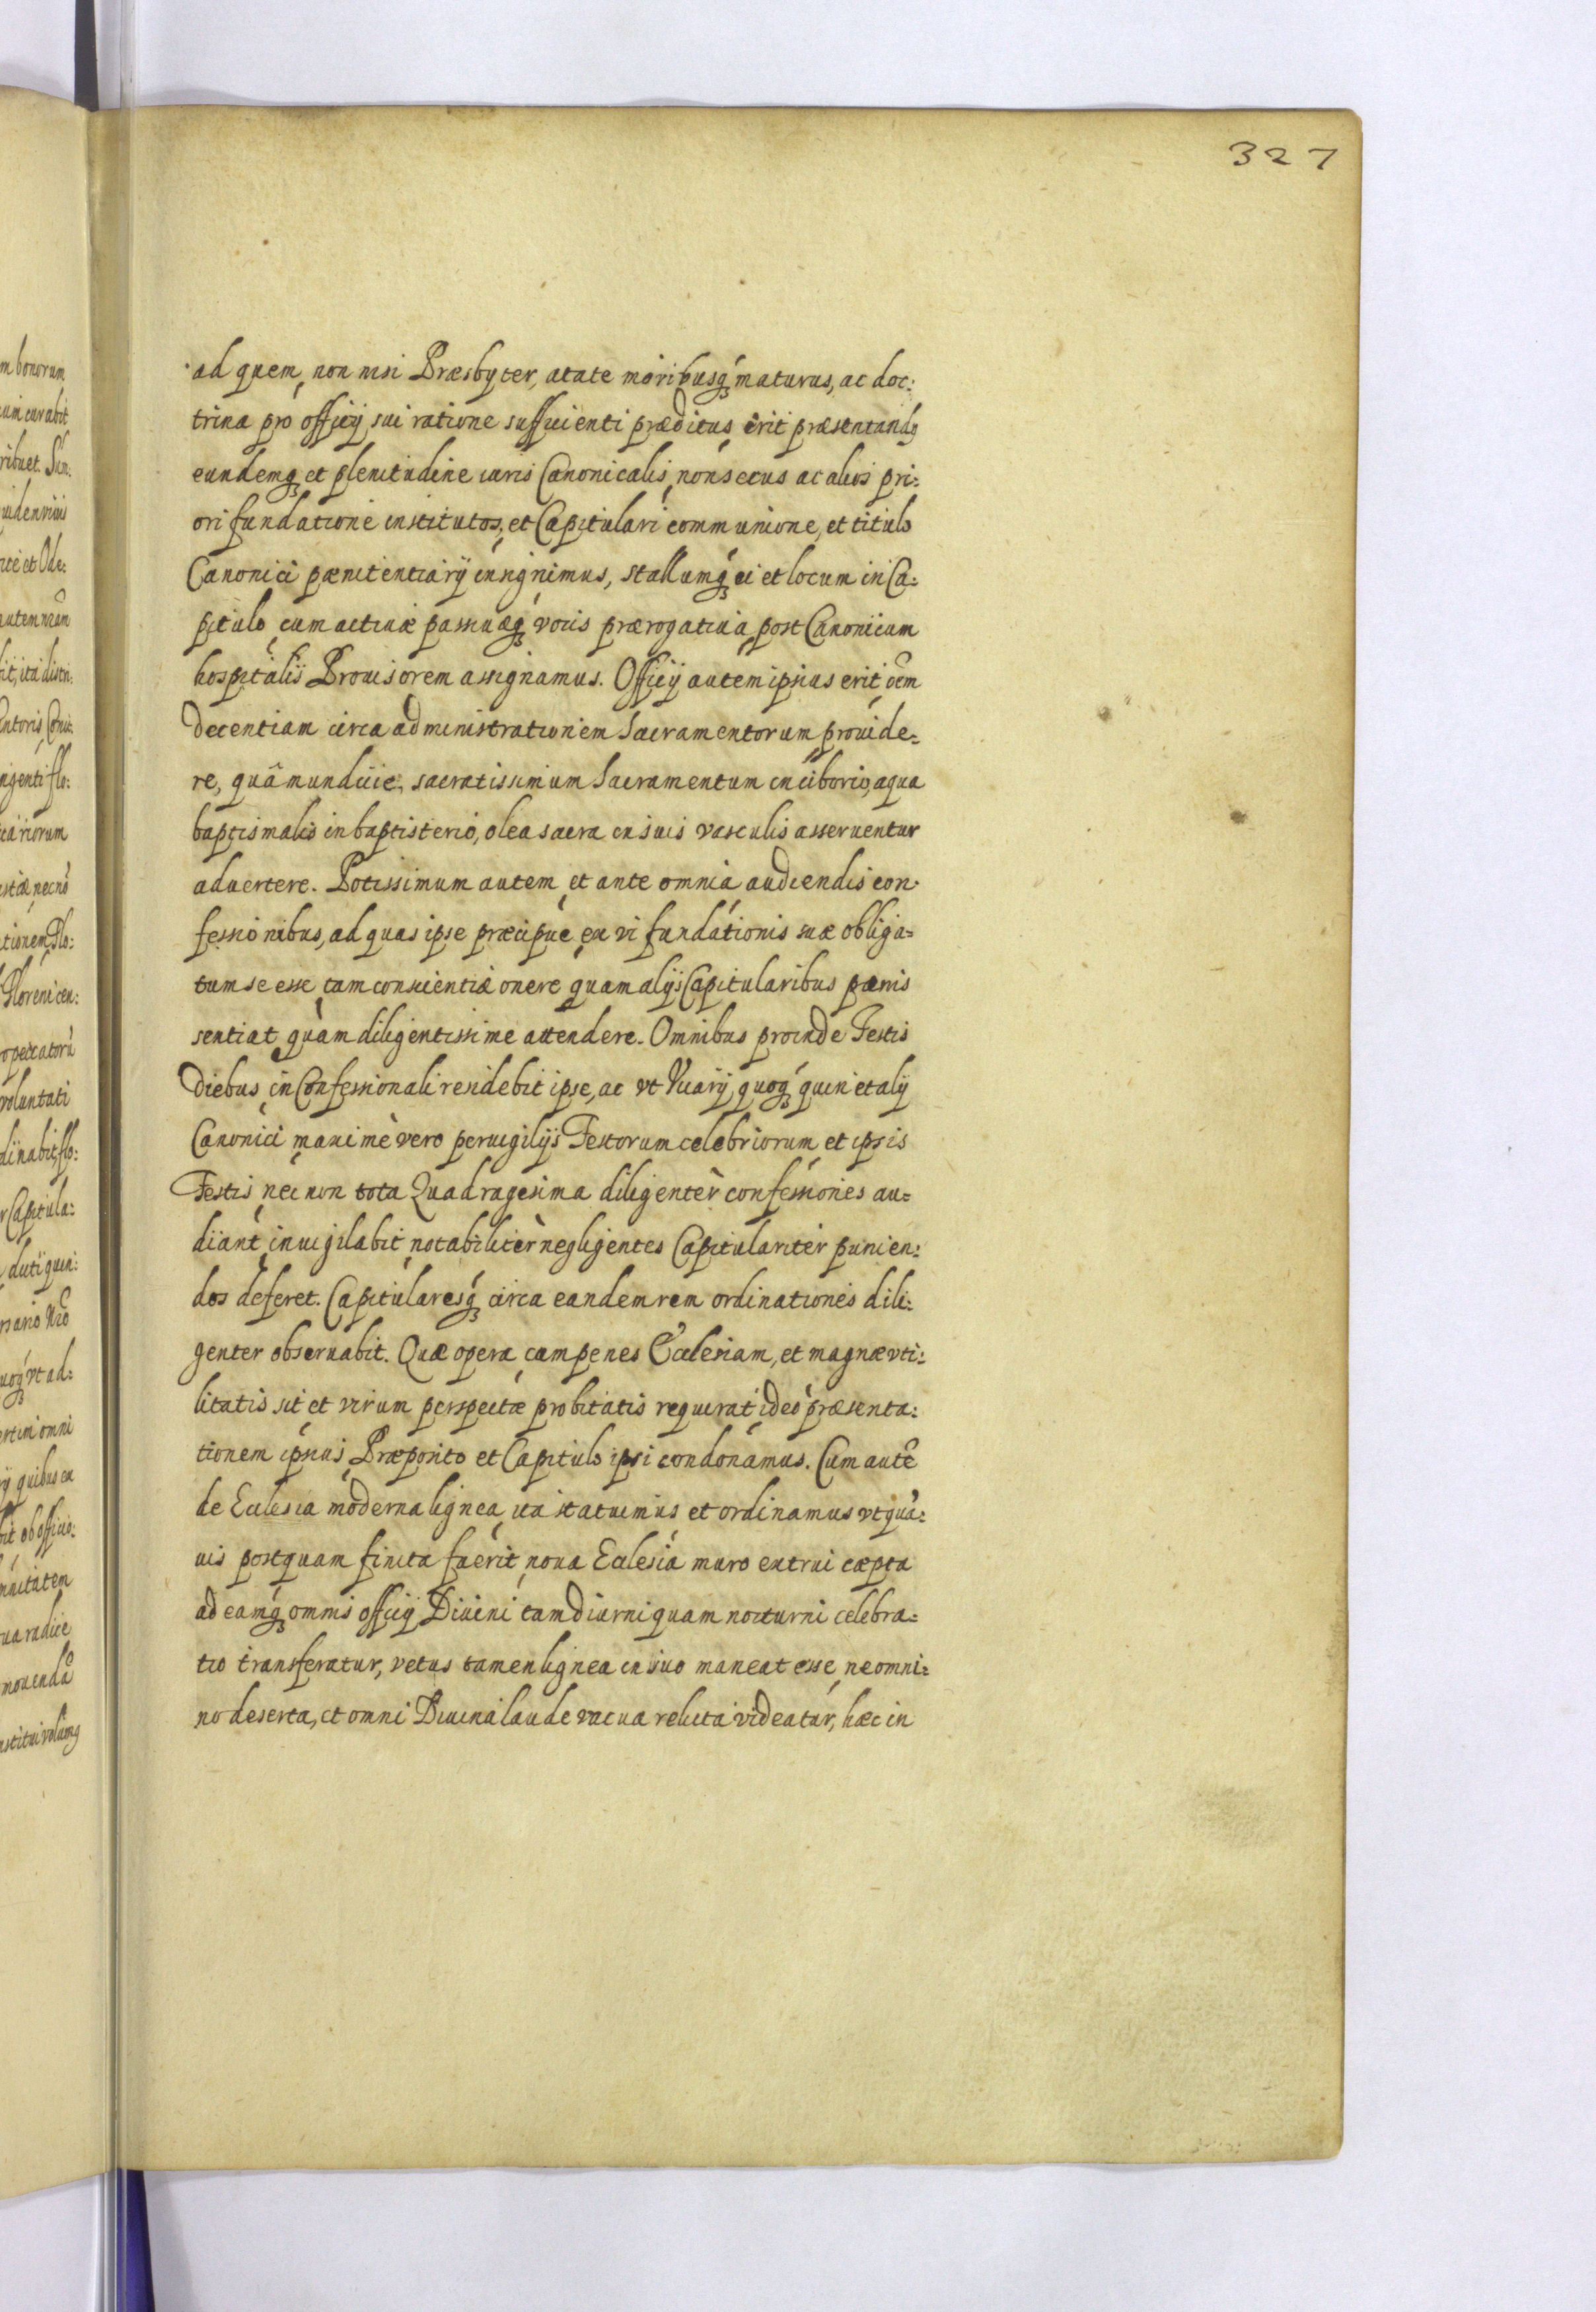 327
ad quem, non nisi Præsbyter, ætate moribusq́ꝫ maturus, ac doc:
trina pro officij sui ratione sufficienti præditus, erit præsentandꝯ
eundemqꝫ et plenitudine iuris Canonicalis, non secus ac alios pri:
ori fundatione institutos, et Capitulari communione, et titulo
Canonici pænitentiarij insignimus, stallumq́ꝫ ei et locum in Ca:
pitulo, cum actiuæ passiuæq́ꝫ vocis prærogatiua, post Canonicum
hospitalis Prouisorem assignamus. Officij autem ipsius erit, oẽm
decentiam circa administrationem Sacramentorum prouide:
re, quâ munditie, sacratissimum Sacramentum in ciborio, aqua
baptismalis in baptisterio, olea sacra in suis vasculis asseruentur
aduertere. Potissimum autem, et ante omnia, audiendis con:
fessionibus, ad quas ipse præcipuè, ex vi fundationis suæ obliga:
tum se esse, tam conscientiæ onere, quam alijs Capitularibus pænis
sentiat, quàm diligentissime attendere. Omnibus proinde Festis
diebus, in Confessionali residebit ipse, ac vt Vicarij, quoq́ꝫ quin et alij
Canonici, maximè vero peruigilijs Festorum celebriorum et ipsis
Festis, nec non tota Quadragesima diligentèr confessiones au:
diant, inuigilabit, notabilitèr negligentes Capitularitèr punien:
dos deferet. Capitularesq́ꝫ circa eandem rem ordinationes dili:
genter obseruabit. Quæ opera cum penes Ecclesiam, et magnæ vti:
litatis sit, et virum perspectæ probitatis requirat, ideò præsenta:
tionem ipsius, Præposito et Capitulo ipsi condonamus. Cum autẽ
de Ecclesia moderna lignea, ita statuimus et ordinamus vt quã:
uis postquam finita fuerit, noua Ecclesia muro extrui cæpta
ad eamq́ꝫ omnis officij Diuini, tam diurni quam nocturni celebra:
tio transferatur, vetus tamen lignea in suo maneat esse, ne omni:
no deserta, et omni Diuina laude vacua relicta videatur, hæc in